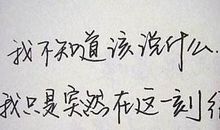 我不知道该说什么.
我只是突然在这一刻